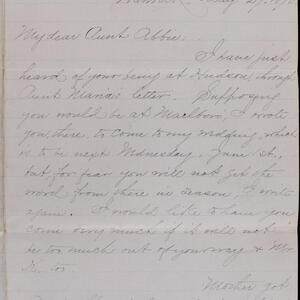 My dear Aunt Abbie.
I have just
heard of your being at Hudson, through
Aunt Maria's letter. Supposing
you would be at Marlboro, I wrote
you there, to come to my wedding which
is to be next Wednesday, June 1st.,
but for fear you will not get the
word from there in season, I write
again. I would like to have you
come very much if it will not
be too much out of your way & Mr
K. too.
Mother got